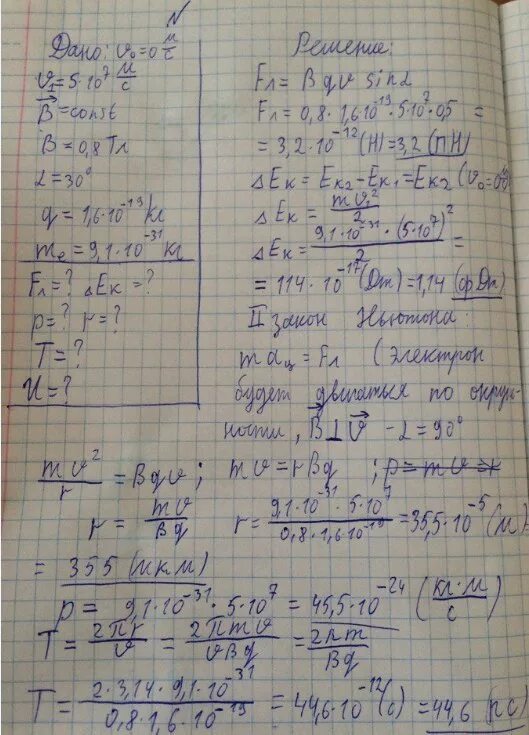 N
Дано: v₀=0 м/с
v₁=5·10⁷ м/с
B⃗=const
B=0,8Тл
α=30°
q=1,6·10⁻¹⁹ кг
mₑ=9,1·10⁻³¹ кг
Fл=? ΔEк=?
p=? r=?
T=?
U=?
Решение:
Fл = Bqv sinα
Fл=0,8·1,6·10⁻¹⁹·5·10⁷·0,5 =
= 3,2·10⁻¹²(Н)=3,2(пН)
ΔEк=Eк₂-Eк₁=Eк₂(v₀=0)
ΔEк = mv₁²/2
ΔEк= 9,1·10⁻³¹·(5·10⁷)²/2 =
= 114·10⁻¹⁷(Дж)=1,14(фДж)
II закон Ньютона:
maц=Fл (электрон
будет двигаться по окруж-
ности, B⃗⊥v⃗ - α=90°
mv²/r = Bqv; mv=rBq ; p=mv=r
r = mv/Bq r= 9,1·10⁻³¹·5·10⁷/0,8·1,6·10⁻¹⁹ =35,5·10⁻⁵(м)
= 355(мкм)
p = 9,1·10⁻³¹·5·10⁷ = 45,5·10⁻²⁴ (кг·м/с)
T = 2πr/v = 2πmv/vBq = 2πm/Bq
T = 2·3,14·9,1·10⁻³¹/0,8·1,6·10⁻¹⁹ = 44,6·10⁻¹²(с) = 44,6(пс)